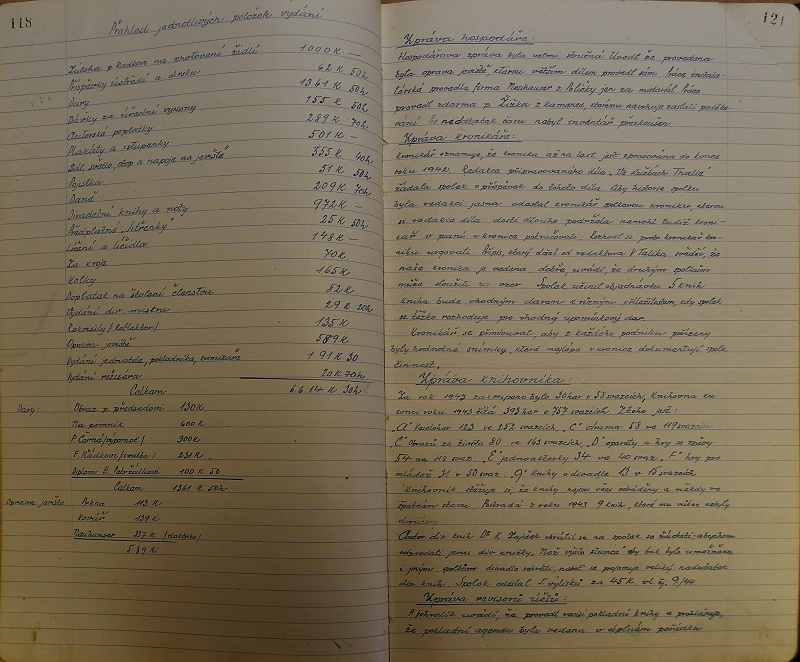 118
Přehled jednotlivých položek vydání
Záloha p Radkovi na zhotovení židlí 1000 K —
Příspěvky ústředí a okrsku 62 K 50h
Dary 1361 K 50h
Dávky za úřední výkony 155 K 50h
Autorské poplatky 289 K 70h
Plakáty a vstupenky 501 K —
Sál, světlo, otop a nápoje na jeviště 555 K 40h
Pojistka 51 K 50h
Daně 209 K 70h
Divadelní knihy a noty 972 K —
Předplatné „Jitřenky" 25 K 50h
Líčení a líčidla 148 K —
Za kroje 70 K
Kolky 165 K
Doplatek na školení členstva 82 K
Vydání div. mustra 29 K 20h
Rozvisily /Reflektor/ 135 K
Oprava jeviště 589 K
Vydání jednatele, pokladníka, kronikáře 191 K 30
Vydání režiséra 20 K 70h
Celkem 6.614 K 30h
Dary: Obraz p. předsedovi 130 K
Na pomník 600 K
P. Černá /výpomoc/ 300 K
F. Rádkovi /svatba/ 231 K
Diplom E. Petržálkové 100 K 50
Celkem 1361 K 50h
Oprava jeviště Prkna 113 K
Kovář 139 K
Neuhauser 337 K /elektrika/
589 K
121
Zpráva hospodáře:
Hospodářova zpráva byla velmi stručná. Uvedl že provedena
byla oprava jeviště, kterou větším dílem provedl sám, práce instala-
térské provedla firma Neuhauser z Poličky jen za materiál. Práce
provedl zdarma p. Žižka z Kamence, kterému navrhuje zaslati poděko-
vání. Pro nedostatek času nebyl inventář přezkoušen.
Zpráva kronikáře:
Kronikář oznamuje, že kronika až na text jest zpracována do konce
roku 1942. Redakce připravovaného díla „Ve službách Thalie"
žádala spolek o příspěvek do tohoto díla. Aby historie spolku
byla redakci jasná odeslal kronikář spolkovou kroniku, kterou
si redakce díla dosti dlouho podržela nemohl tudíž kroni-
kář v psaní v kronice pokračovati. Rozhodl se proto kronikář kro-
niku urgovati. Přípis, který došel od redaktora V Talíka svědčí, že
naše kronika je vedena dobře, uvádí, že druhým spolkům
může sloužiti za vzor. Spolek učinil objednávku 5 knih
Kniha bude vhodným darem k různým příležitostem, kdy spolek
se těžko rozhoduje pro vhodný upomínkový dar.
Kronikář se přimlouval, aby z každého podniku pořízeny
byly hodnotné snímky, které nejlépe v kronice dokumentují spolk.
činnost.
Zpráva knihovníka:
Za rok 1943 zakoupeno bylo 30 her v 58 svazcích, Knihovna ku
konci roku 1943 čítá 393 her o 757 svazcích. Z toho jest:
„A" Veseloher 123 ve 252 svazcích, „B" drama 58 ve 119 svazcích
„C" Obrazů ze života 80 ve 163 svazcích, „D" operety a hry se zpěvy
54 ve 118 svaz. „E" jednoaktovky 34 ve 40 svaz. „F" hry pro
mládež 31 v 50 svaz. „G" Knihy o divadle 13 v 15 svazcích
Knihovník stěžuje si, že knihy nejsou včas odváděny a někdy ve
špatném stavu. Postrádá z roku 1943 9 knih, které mu vůbec nebyly
doručeny
Autor div. knih Dr K. Zajíček obrátil se na spolek se žádostí abychom
odprodali jemu div. knížky. Než vyjde slunce aby tak bylo umožněno
i jiným spolkům divadlo sehráti, neboť se projevuje veliký nedostatek
div. knih. Spolek odeslal 5 výtisků za 45 K vl. čj. 9/44.
Zpráva revisorů účtů:
P. Johnalík uvádí, že provedl revisi pokladní knihy a prohlašuje,
že pokladní agenda byla vedena v úplném pořádku